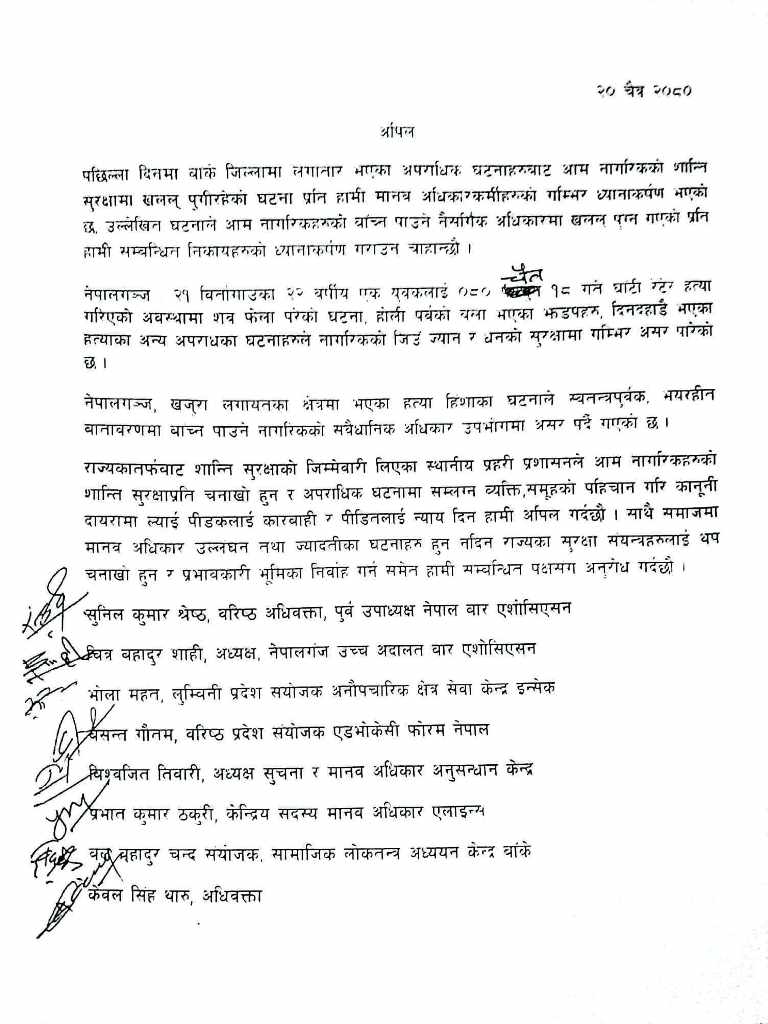 २० चैत्र २०८०
अपिल
पछिल्ला दिनमा बाके जिल्लामा लगातार भएका अपराधिक घटनाहरुबाट आम नागरिकको शान्ति
सुरक्षामा खलल् पुगीरहेको घटना प्रति हामी मानव अधिकारकर्मीहरुको गम्भिर ध्यानाकर्षण भएको
छ, उल्लेखित घटनाले आम नागरिकहरुको बाँच्न पाउने नैसर्गिक अधिकारमा खलल् पुग्न गएको प्रति
हामी सम्बन्धित निकायहरुको ध्यानाकर्षण गराउन चाहान्छौ ।
नेपालगञ्ज २१ बिनौगाउका २२ वर्षीय एक युवकलाई ०८० चैत १८ गते घाँटी रेटेर हत्या
गरिएको अवस्थामा शव फेला परेको घटना, होली पर्वको बेला भएका झडपहरु, दिनदहाडै भएका
हत्याका अन्य अपराधका घटनाहरुले नागरिकको जिउ ज्यान र धनको सुरक्षामा गम्भिर असर पारेको
छ ।
नेपालगञ्ज, खजुरा लगायतका क्षेत्रमा भएका हत्या हिंशाका घटनाले स्वतन्त्रपूर्वक, भयरहीत
वातावरणमा बाच्न पाउने नागरिकको सवैधानिक अधिकार उपभोगमा असर पर्दै गएको छ ।
राज्यकातर्फबाट शान्ति सुरक्षाको जिम्मेवारी लिएका स्थानीय प्रहरी प्रशासनले आम नागरिकहरुको
शान्ति सुरक्षाप्रति चनाखो हुन र अपराधिक घटनामा सम्लग्न व्यक्ति,समूहको पहिचान गरि कानूनी
दायरामा ल्याई पीडकलाई कारबाही र पीडितलाई न्याय दिन हामी अपिल गर्दछौ । साथै समाजमा
मानव अधिकार उल्लघन तथा ज्यादतीका घटनाहरु हुन नदिन राज्यका सुरक्षा संयन्त्रहरुलाई थप
चनाखो हुन र प्रभावकारी भूमिका निर्वाह गर्न समेत हामी सम्बन्धित पक्षसग अनुरोध गर्दछौ ।
सुनिल कुमार श्रेष्ठ, वरिष्ठ अधिवक्ता, पुर्व उपाध्यक्ष नेपाल बार एशोसिएसन
चित्र बहादुर शाही, अध्यक्ष, नेपालगंज उच्च अदालत बार एशोसिएसन
भोला महत, लुम्विनी प्रदेश सयोजक अनौपचारिक क्षेत्र सेवा केन्द्र इन्सेक
बसन्त गौतम, वरिष्ठ प्रदेश संयोजक एडभोकेसी फोरम नेपाल
विश्वजित तिवारी, अध्यक्ष सुचना र मानव अधिकार अनुसन्धान केन्द्र
प्रभात कुमार ठकुरी, केन्द्रिय सदस्य मानव अधिकार एलाइन्स
बहादुर चन्द सयोजक, सामाजिक लोकतन्त्र अध्ययन केन्द्र बांके
केवल सिंह थारु, अधिवक्ता